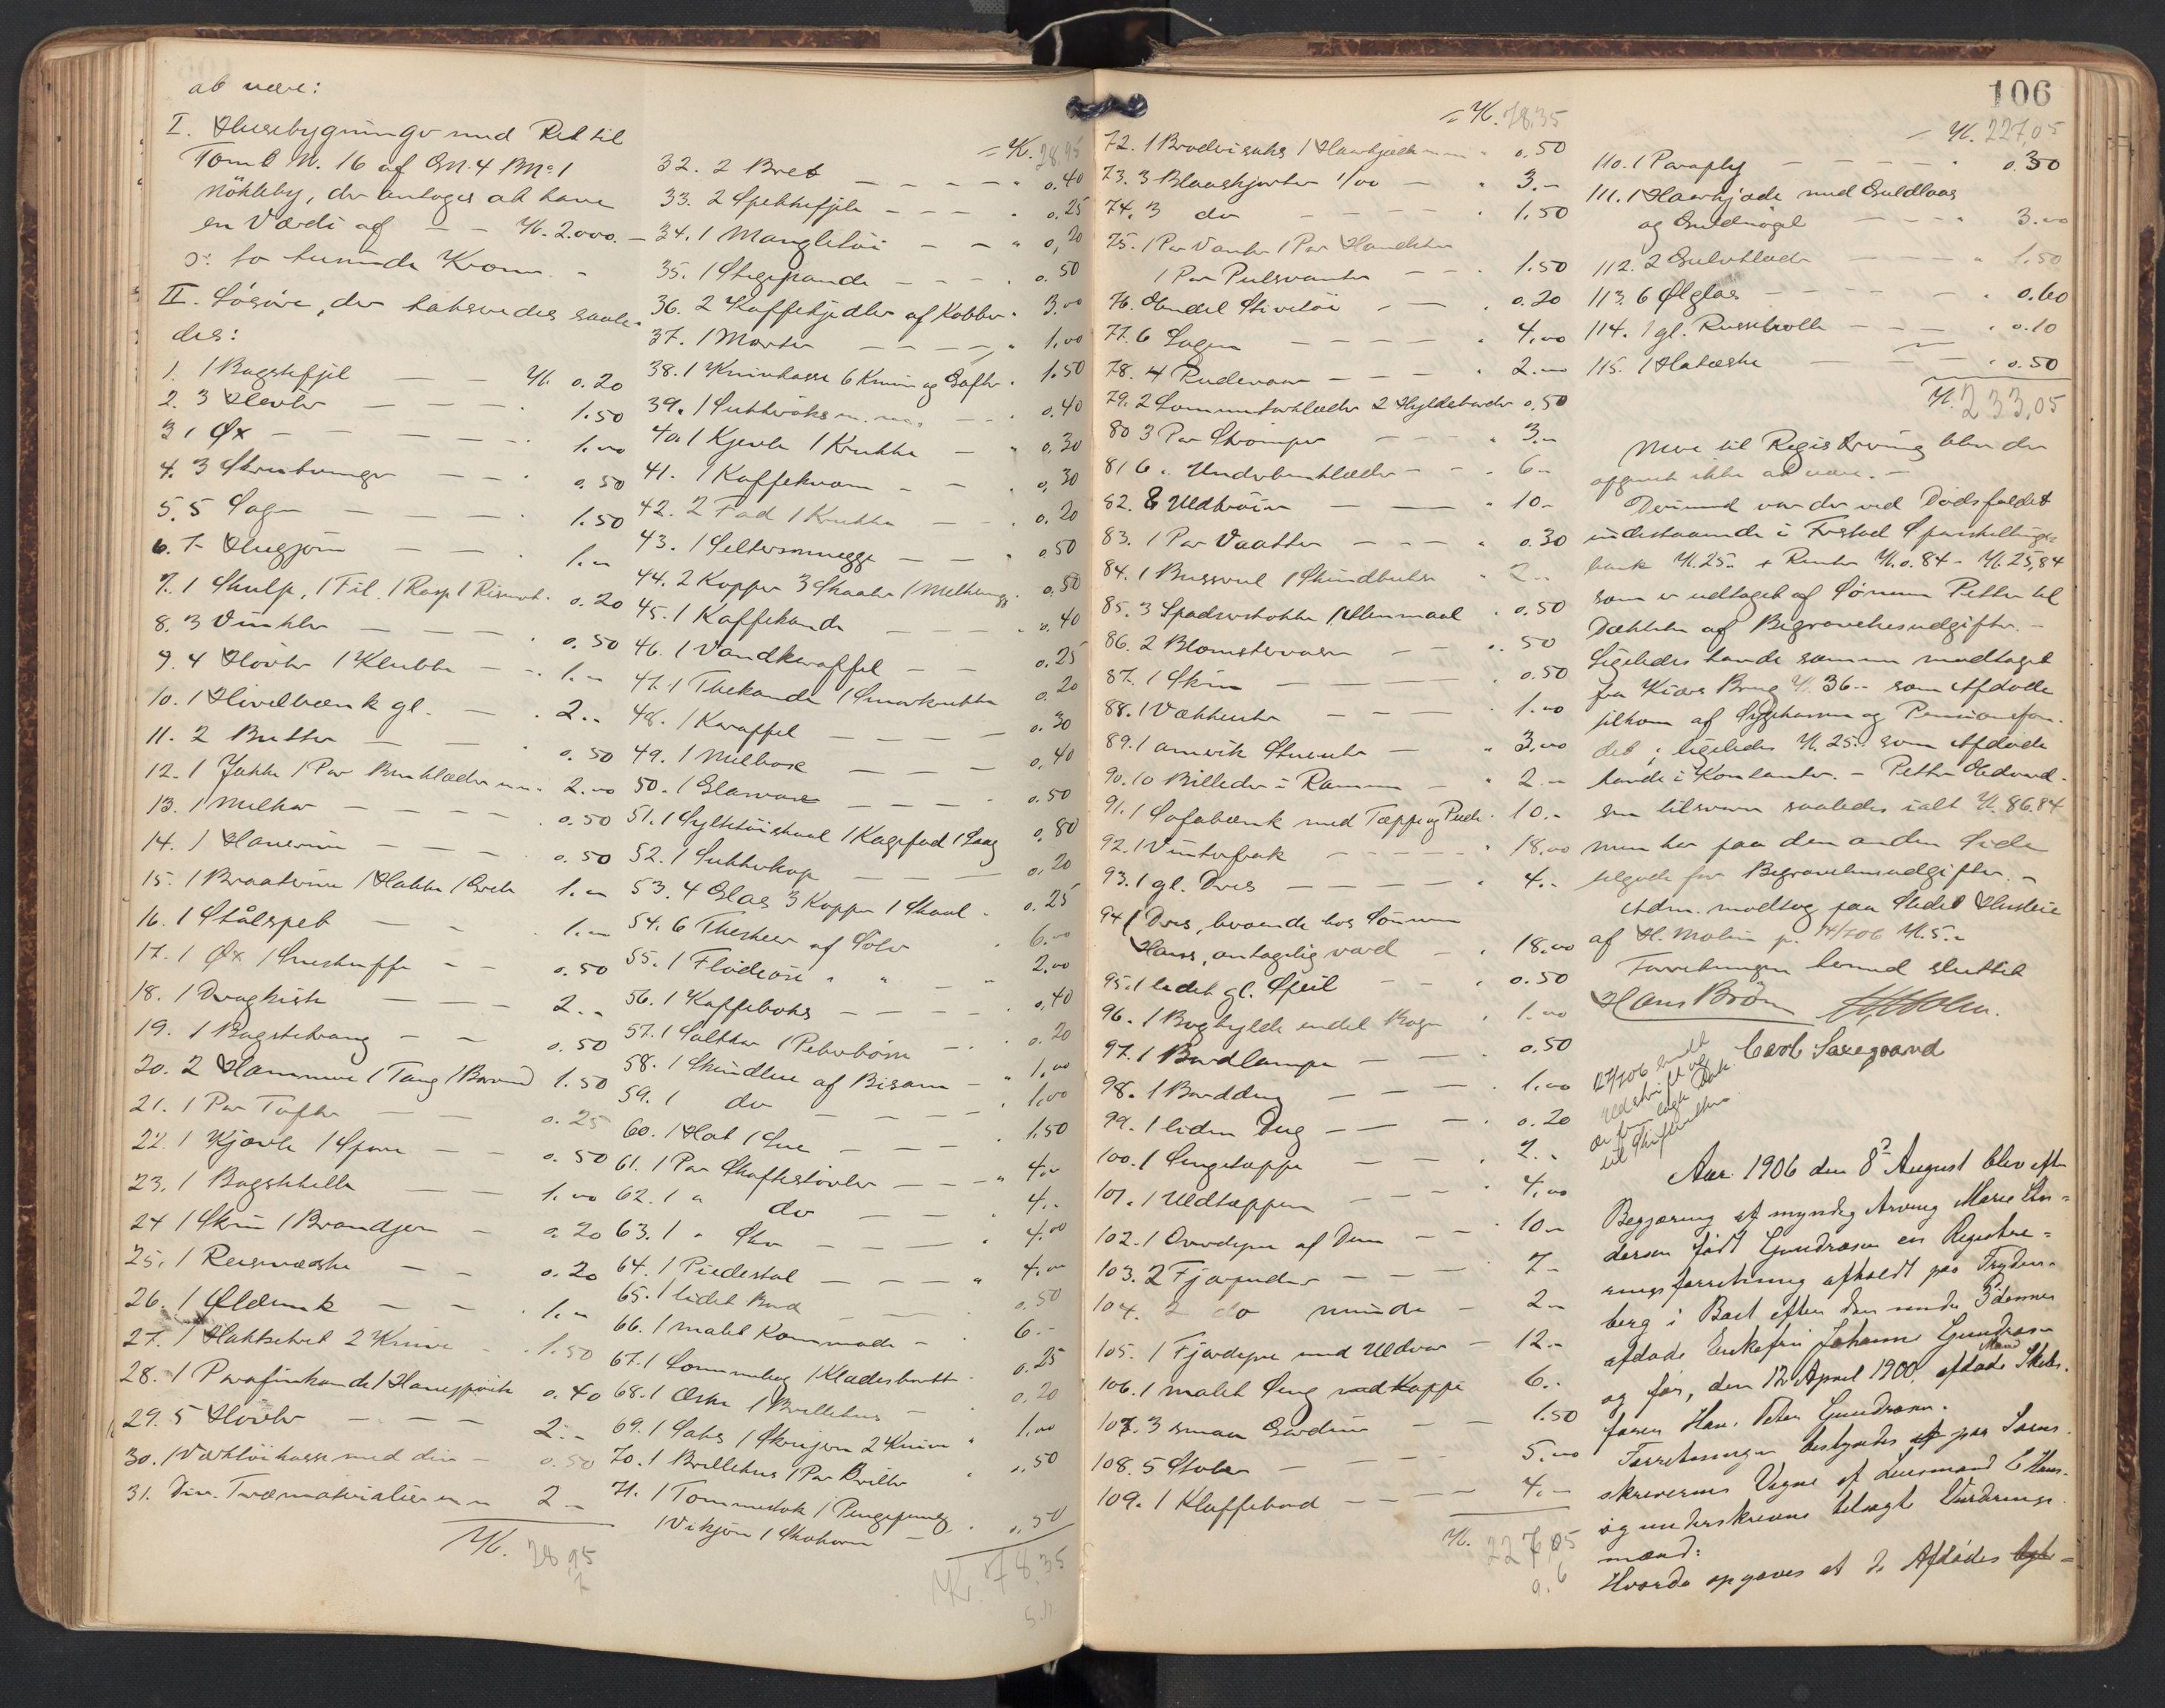 at være:
I. Husebygninger med Ret til
Tomt N. 16 af GN. 4 BNo 1
Nökleby, der antages at have
en Værdi af — — Kr. 2.000. —
ɔ: to tusinde Kroner. -
II. Lösöre, der taksredes saale-
des:
1. 1 Bagstefjel — — Kr. 0.20
2. 3 Høvler — — 1.50
3. 1 Øx — — — 1.00
4. 3 Skrutvinger — — 0.50
5. 5 Sager — — 1.50
6. 7 Hugjern — — 1.-
7. 1 Skulp, 1 Fil, 1 Rasp 1 0.20
8. 3 Vinkler — — 0.50
9. 4 Hövler 1 Klubbe — 1.-
10. 1 Hövelbænk gl. — 2.-
11. 2 Bütter — — 0.50
12. 1 Jakke 1 Par Benklæder m.m. 2.00
13. 1 — — 0.50
14. 1 — — 0.50
15. 1 1 Hakke 1 Greb 1.-
16. 1 Stålspet — 1.-
17. 1 Øx 1 Sneskuffe — 0.50
18. 1 Dragkiste — — 2.-
19. 1 Bagstetraug — — 0.50
20. 2 Hammere 1 Tang 1 1.50
21. 1 Par Tøfler — — 0.25
22. 1 Kjævle 1 — — 0.50
23. 1 Bagstehelle — — 1.00
24. 1 Skrin 1 Brændjern — 0.20
25. 1 Reisevæske — — 0.20
26. 1 — — 1.-
27. 1 Hakkebret 2 Knive 1.50
28. 1 Parafinkande 1 0.40
29. 5 Hövler — — 2.-
30. 1 Værktöikasse med div — 0.50
31. Div. Træmaterialier m m 2 -
Kr. 28,95
= Kr. 28,95
32. 2 Bret — — — 0.40
33. 2 Spekkefjele — — — 0.25
34. 1 Mangletöi — — 0,20
35. 1 Stegepande — — 0.50
36. 2 Kaffekjedler af Kobber 3.00
37. 1 Morter — — — 1,00
38. 1 Knivkasse 6 Knive og Gafler 1.50
39. 1 Sukkeröks m. m. — 0,40
40. 1 Kjevle 1 Krukke — 0,30
41. 1 Kaffekvern — — 0,30
42. 2 Fad 1 Krukke — — 0.20
43. 1 Seltersmugge — — 0.50
44. 2 Kopper 3 Skaaler 1 Melkemugge 0,50
45. 1 Kaffekande — — 0.40
46. 1 Vandkaraffel — — 0.25
47. 1 Thekande 1 Smørkrukke 0.20
48. 1 Karaffel — — — 0.30
49. 1 Melbox — — — 0,40
50. 1 Glasvase — — — 0.50
51. 1 Syltetöiskaal 1 Kagefad 1 0,80
52. 1 Sukkerkop — — 0,20
53. 4 Glas 3 Kopper 1 Skaal 0.25
54. 6 Theskeer af Sölv 6.00
55. 1 Flödeöse " " — — 2.00
56. 1 Kaffeboks — — — 0,40
57. 1 Saltkar 1 Peberbösse — 0.20
58. 1 Skindlue af Bisam — 1,00
59. 1 do — — — 1,00
60. 1 Hat 1 Lue — — 1.50
61. 1 Par Skaftestövler — — 4.-
62. 1 " do — — 4.-
63. 1 " Sko — — 4.00
64. 1 Piedestal — — — 4.00
65. 1 lidet Bord 0.50
66. 1 malet Kommode — 6.-
67. 1 Lommebog 1 Klædesbørste 0.25
68. 1 Æske 1 Brillehus — 0.20
69. 1 Saks 1 2 Knive 1,00
70. 1 Brillehus 1 Par Briller 0.50
71. 1 Tommestok 1 Pengepung
1 Vikjern 1 Skohorn 0.50
Kr. 78,35
= Kr. 78.35
72. 1 Brødrisaks 1 Haarkjæde 0.50
73. 3 Blaaskjorter 1/00 — 3.-
74. 3 do — — 1.50
75. 1 Par Vanter 1 Par Handsker
1 Par Pulsvanter — — 1.50
76. Endel Stivetöi — — 0.20
77. 6 Lagen — — — 4,00
78. 4 Pudevaar — — — 2.-
79. 2 Lommetørklæder 2 Hyldeborder 0,50
80. 3 Par Strömper — — 3.-
81. 6 " Underbenklæder — — 6 -
82. 8 Uldtröier — — 10.-
83. 1 Par Vaatter — — — 0.30
84. 1 Busserul 1 Skindbukse 2.-
85. 3 Spadserstokke 1 Alenmaal 0.50
86. 2 Blomstervaser — — 0.50
87. 1 Skrin — — — 0.50
88. 1 Vækkeuhr — — 1.00
89. 1 amerik Stueuhr — 3.00
90. 10 Billeder i Ramme — 2.-
91. 1 Sofabænk med Tæppe og Pude 10.-
92. 1 Vinterfrak — — 18.00
93. 1 gl. Dres — — — 4.-
94. 1 Dres, beroende hos Sönnen
Hans, antagelig værd — 18.00
95. 1 lidet gl. Speil — — 0.50
96. 1 Boghylde endel Bøger 1.00
97. 1 Bordlampe — — 0.50
98. 1 Borddug — — 1.00
99. 1 liden Dug — — 0.20
100. 1 Sengetæppe — — 2.-
101. 1 Uldtæppe — — — 4,00
102. 1 Overdyne af Dun — — 10 -
103. 2 Fjærpuder — — — 7 -
104. 2 do mindre — 2 -
105. 1 Fjærdyne med Uldvar — 12.-
106. 1 malet Seng med Kappe 6.-
107. 3 smaa Gardiner — — 1.50
108. 5 Stoler — — — 5.00
109. 1 Klaffebord — — — 4.-
Kr. 227,05
106
= Kr. 227,05
110. 1 Paraply — — — 0.30
111. 1 Haarkjæde med Guldlaas
og Guldnögel — — — 3.00
112. 2 Gulvklæder — — — 1.50
113. 6 Ølglas — — — 0.60
114. 1 gl. — — 0.10
115. 1 Hatæske — — 0.50
Kr. 233,05
Mere til Registrering blev der
opgivet ikke at være. -
Derimod var der ved Dödsfaldet
indestaaende i Enebak Sparskillings-
bank Kr. 25.- + Renter Kr. 0.84 = Kr. 25,84
som er udtaget af Sönnen Petter til
Dækkelse af Begravelsesudgifter. -
Ligeledes havde samme modtaget
fra Kiærs Brug Kr. 36.- som Afdøde
tilkom af Sygekassen og Pensionsfon-
det; ligeledes Kr. 25.- som Afdøde
havde i Kontanter. - Petter Hedvard-
sen tilsvarer saaledes ialt Kr. 86.84
men har paa den anden Side
tilgode for Begravelsesudgifter. -
Adm. modtog paa Stedet Husleie
af H. Molin pr. 14/7 06 Kr. 5.-
Forretningen hermed sluttet
Hans Brön
Carl Saxegaard
27/7 06 sendt
Udskrift og
Aar 1906 den 8de August blev efter
Begjæring af myndig Arving Marie An-
dersen født Gundersen en Registre-
ringsforretning afholdt paa Fryden-
berg i Bart efter den under 3 dennes
afdøde Enkefru Johanne Gundersen
og før, den 12 April 1900, afdøde Mand Skibs-
fører Han. Peter Gundersen.
Forretningen bestyredes paa Sorens-
skriverens Vegne af Lensmand C Han-
og underskrevne tilsagte Vurderings-
mænd:
Hvorda opgaves at de Afdødes